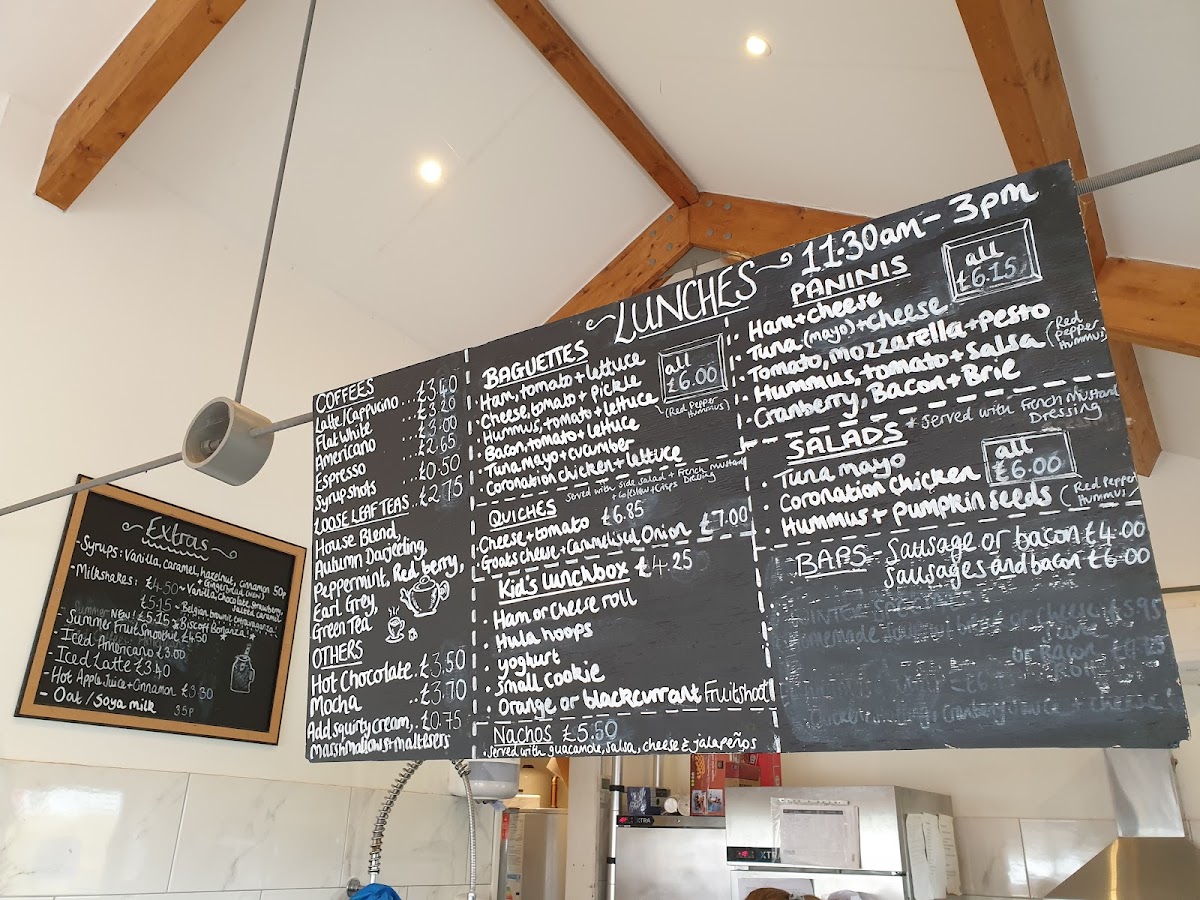 Extras
-Syrups: Vanilla, caramel, hazelnut, cinnamon 50p
+ Gingerbread (NEW)
-Milkshakes: £4.50~Vanilla, chocolate, strawberry,
salted caramel
£5.15 ~ Belgian brownie extravaganza!
NEW! £5.15 * Biscoff Bonanza! *
Summer Fruit Smoothie £4.50
-Iced Americano £3.00
-Iced Latte £3.40
-Hot Apple Juice + Cinnamon £3.30
- Oat / Soya milk 35p
COFFEES
Latte/Cappucino ... £3.40
Flat White ... £3.20
Americano .. £3.00
Espresso .. £2.65
Syrup shots £0.50
LOOSE LEAF TEAS £2.75
House Blend,
Autumn Darjeeling,
Peppermint, Red berry,
Earl Grey,
Green Tea
OTHERS
Hot Chocolate . £3.50
Mocha .. £3.70
Add squirty cream, . £0.75
marshmallows + maltesers
LUNCHES 11:30am - 3pm
BAGUETTES
all
£6.00
· Ham, tomato + lettuce
· Cheese, tomato + pickle
· Hummus, tomato + lettuce (Red Pepper Hummus)
· Bacon tomato + lettuce
· Tuna mayo + cucumber
· Coronation chicken + lettuce
served with side salad + French mustard
+ coleslaw + crisps Dressing
QUICHES
Cheese + tomato £6.85
Goats cheese + Carmelised Onion £7.00
Kid's lunchbox £4.25
· Ham or cheese roll
· Hula hoops
· yoghurt
· small cookie
· Orange or blackcurrant Fruitshoot
Nachos £5.50
· served with guacamole, salsa, cheese & jalapeños
PANINIS
all
£6.15
· Ham + cheese
· Tuna (mayo) + cheese
· Tomato, mozzarella + pesto
· Hummus, tomato + salsa (Red Pepper Hummus)
· Cranberry, Bacon + Brie
SALADS * served with French Mustard
Dressing
all
£6.00
· Tuna mayo
· Coronation chicken
· Hummus + pumpkin seeds (Red Pepper Hummus)
BAPS - Sausage or bacon £4.00
Sausages and bacon £6.00